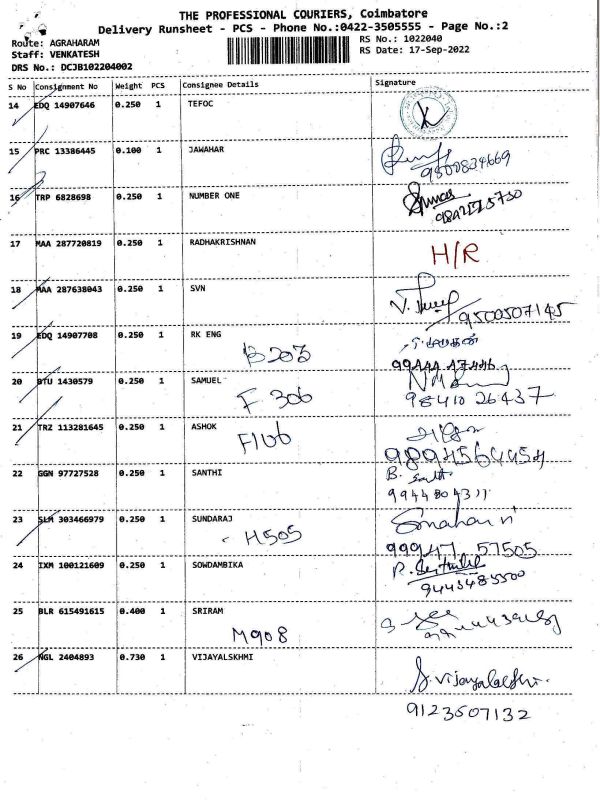 THE PROFESSIONAL COURIERS, Coimbatore
Delivery Runsheet - PCS - Phone No.:0422-3505555 - Page No.:2
Route: AGRAHARAM
RS No.: 1022040
Staff: VENKATESH
RS Date: 17-Sep-2022
DRS No.: DCJB102204002
S No Consignment No Weight PCS Consignee Details Signature
14 EDQ 14907646 0.250 1 TEFOC
15 PRC 13386445 0.100 1 JAWAHAR
9500834669
16 TRP 6828698 0.250 1 NUMBER ONE
17 MAA 287720819 0.250 1 RADHAKRISHNAN H/R
18 MAA 287638043 0.250 1 SVN
9500507145
19 EDQ 14907708 0.250 1 RK ENG
B203
99444 47446
20 BTU 1430579 0.250 1 SAMUEL
F 306
98410 26437
21 TRZ 113281645 0.250 1 ASHOK
F106
9894564454
22 GGN 97727528 0.250 1 SANTHI
B.
9944804311
23 SLM 303466979 0.250 1 SUNDARAJ
H505
99947 57505
24 IXM 100121609 0.250 1 SOWDAMBIKA
9443485500
25 BLR 615491615 0.400 1 SRIRAM
M908
26 NGL 2404893 0.730 1 VIJAYALSKHMI
S. Vijayalakshmi
9123507132